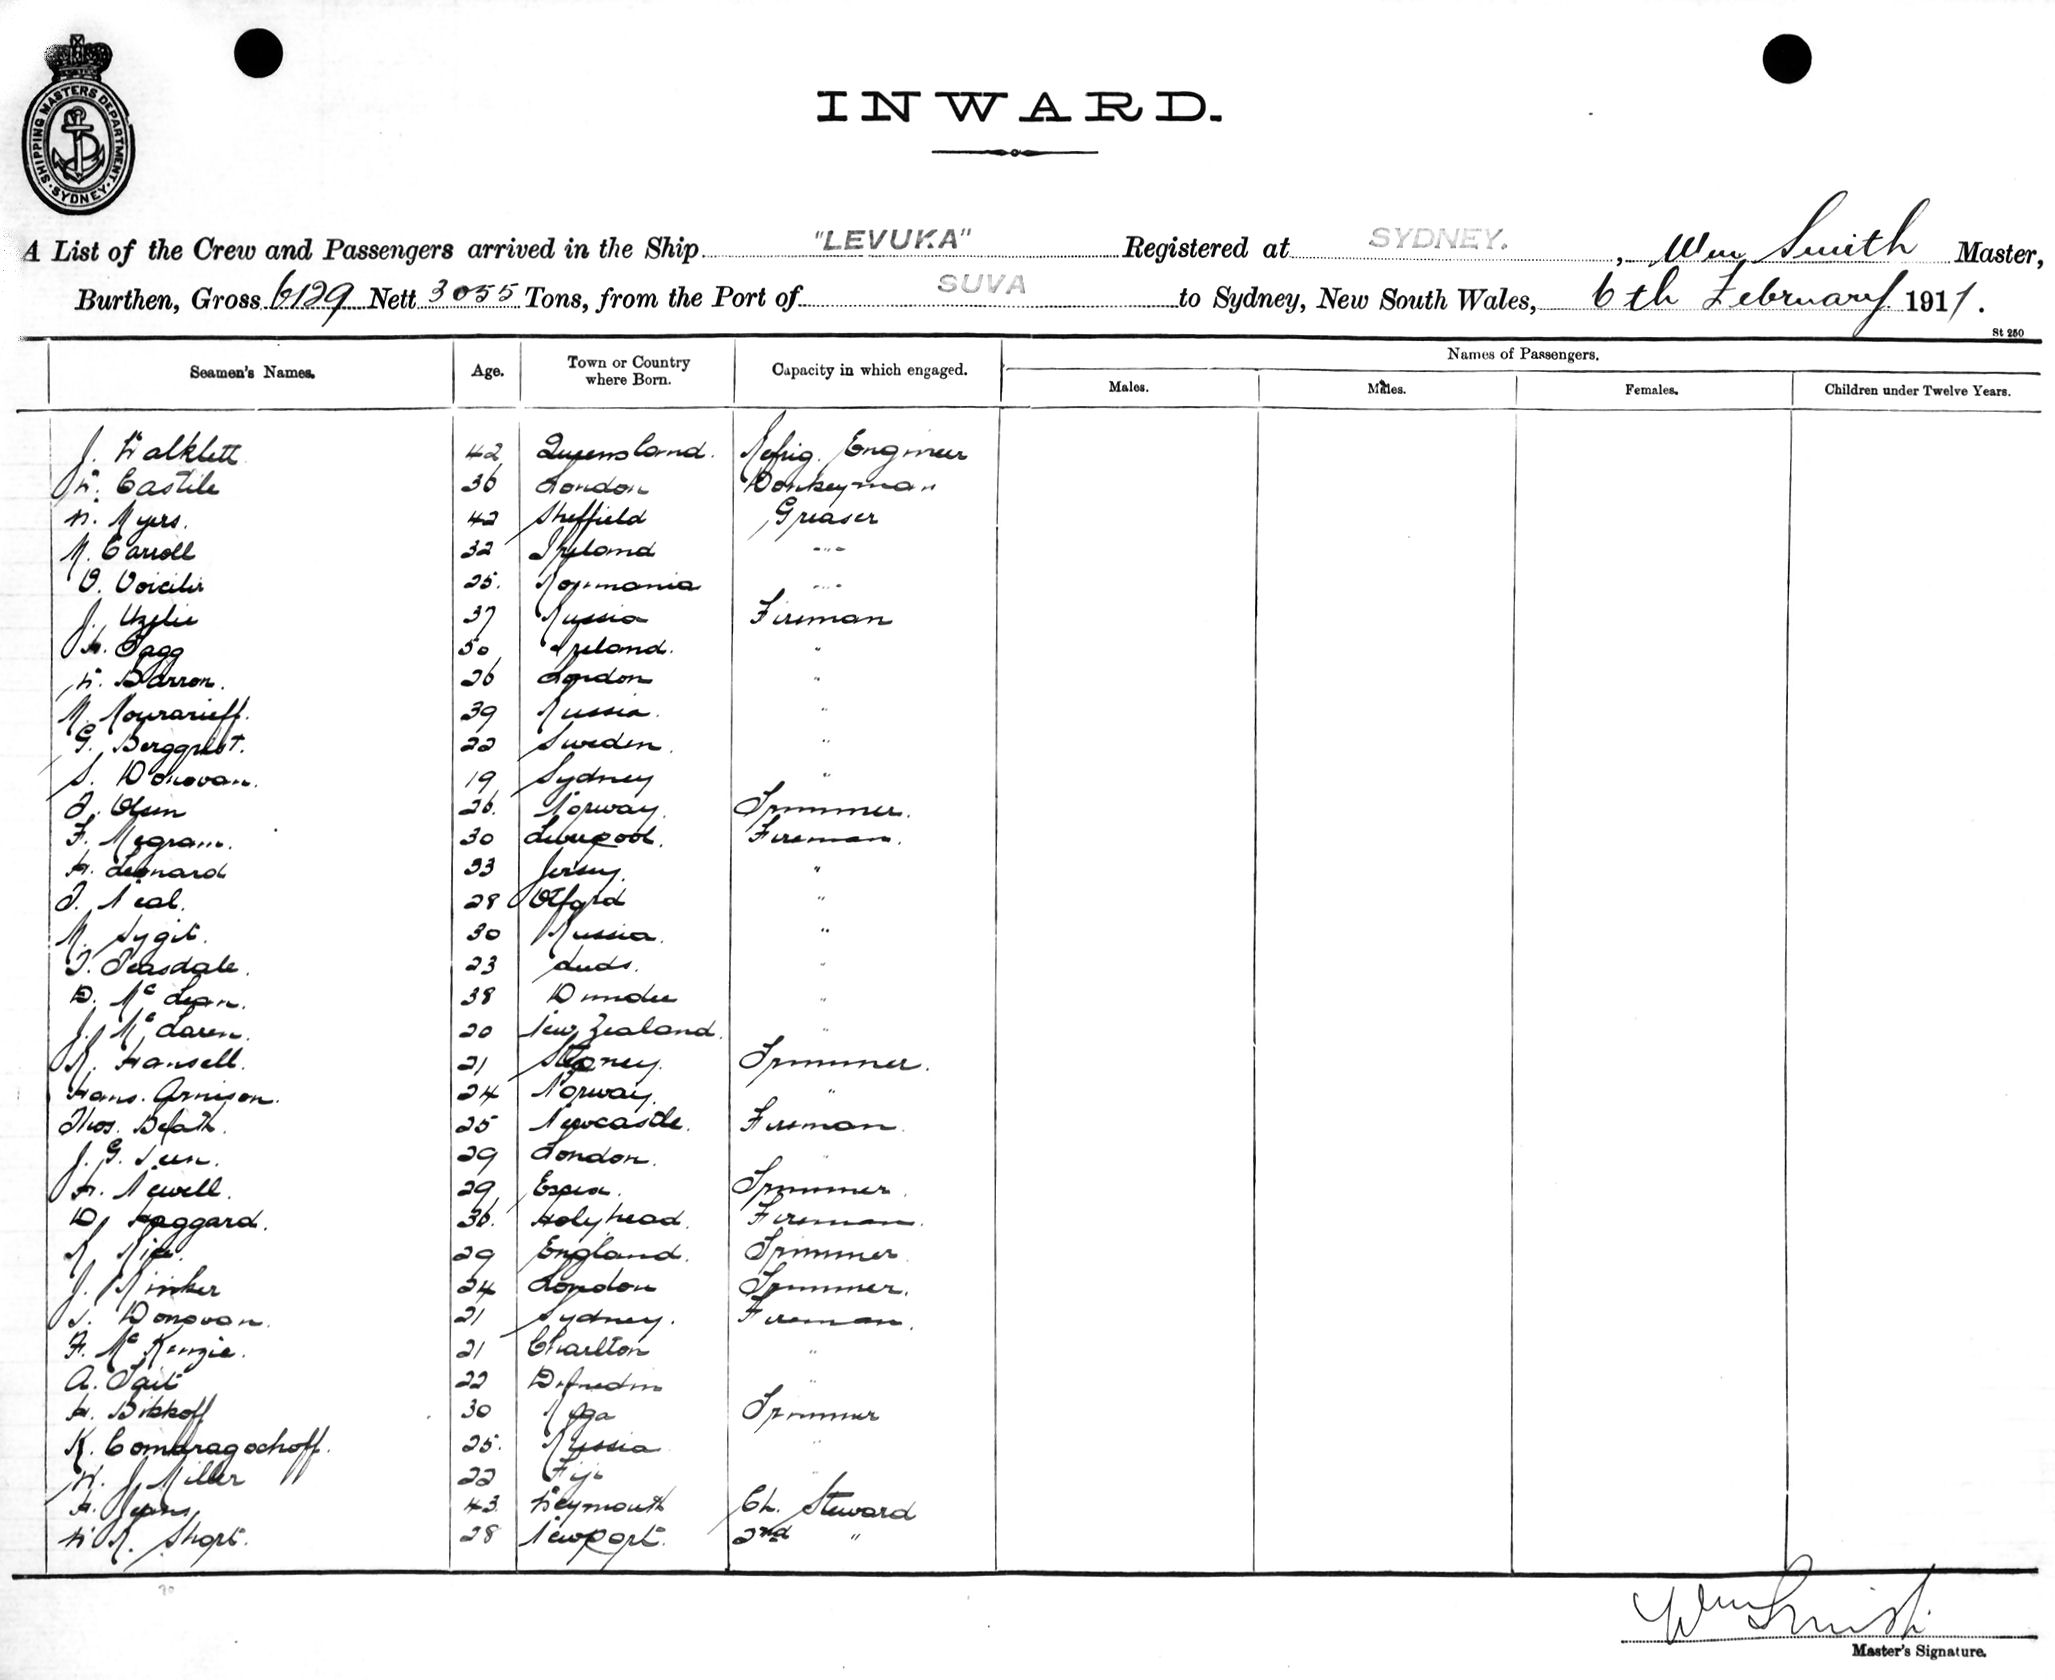 SHIPPING MASTERS DEPARTMENT · SYDNEY ·
INWARD.
A List of the Crew and Passengers arrived in the Ship "LEVUKA" Registered at SYDNEY. , Wm Smith Master,
Burthen, Gross 6129 Nett 3055 Tons, from the Port of SUVA to Sydney, New South Wales, 6th February 1911.
St 250
Seamen's Names. Age. Town or Country where Born. Capacity in which engaged. Names of Passengers.
Males. Males. Females. Children under Twelve Years.
J. Walklett 42 Queensland. Refrig. Engineer
W. Castile 36 London Donkeyman
W. Myers. 42 Sheffield Greaser
M. Carroll 32 Ireland -"-
V. 25. Roumania -"-
J. 37 Russia Fireman
H. Fagg 50 Ireland. "
W. Barron. 26 London "
M. Mouravieff. 39 Russia. "
G. Bergquist. 22 Sweden. "
S. Donovan. 19 Sydney "
T. Olsen 26. Norway. Trimmer.
F. Megram. 30 Liverpool. Fireman.
H. Leonard 33 Jersey. "
T. Neal. 28 "
M. Sygit. 30 Russia. "
T. Teasdale. 23 Leeds. "
D. Mc Lean. 38 Dundee "
J. Mc Laren. 20 New Zealand. "
R. Hansell. 21 Trimmer.
Hans. Arnison. 24 Norway. "
Thos. Death. 25 Newcastle. Fireman.
J. G. 29 London. "
H. Newell. 29 Essex. Trimmer.
D. Haggard. 36. Holyhead. Fireman.
R. Rice. 29 England. Trimmer
J. Rinker 24 London Trimmer.
S. Donovan. 21 Sydney. Fireman.
F. Mc Kenzie. 21 Charlton "
A. Tait 22 Dunedin "
H. Bikkoff 30 Riga Trimmer
K. Comaragochoff. 25. Russia "
W. J. Miller 22 Fiji "
H. Jeans 43. Weymouth Ch. Steward
W R. Short. 28 Newport. 2nd "
Wm Smith
Master's Signature.